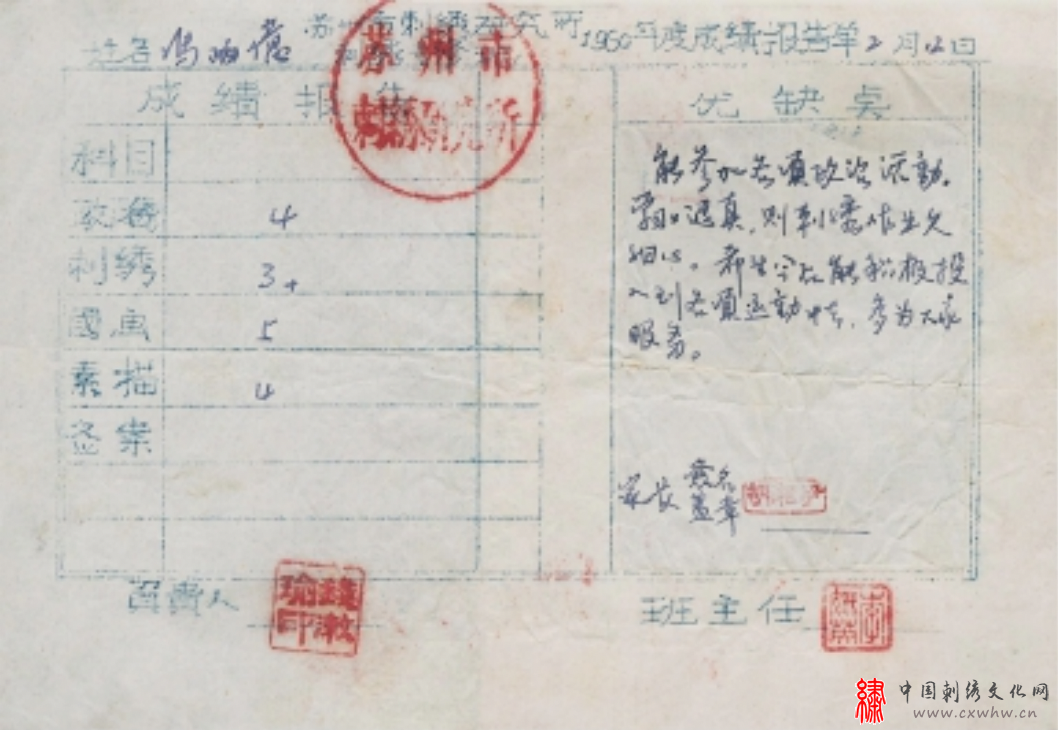 苏州市刺绣研究所1960年度成绩报告单2月12日
姓名
苏州市
刺绣研究所
成绩报告
优缺点
科目
政治 4
刺绣 3+
國画 5
素描 4
图案
能参加各项政治活动。
学习认真,则刺绣
细心。希望今后能积极投
入到各项运动中去,多为大家
服务。
家长 签名
盖章
负责人
班主任
中国刺绣文化网
www.cxwhw.cn